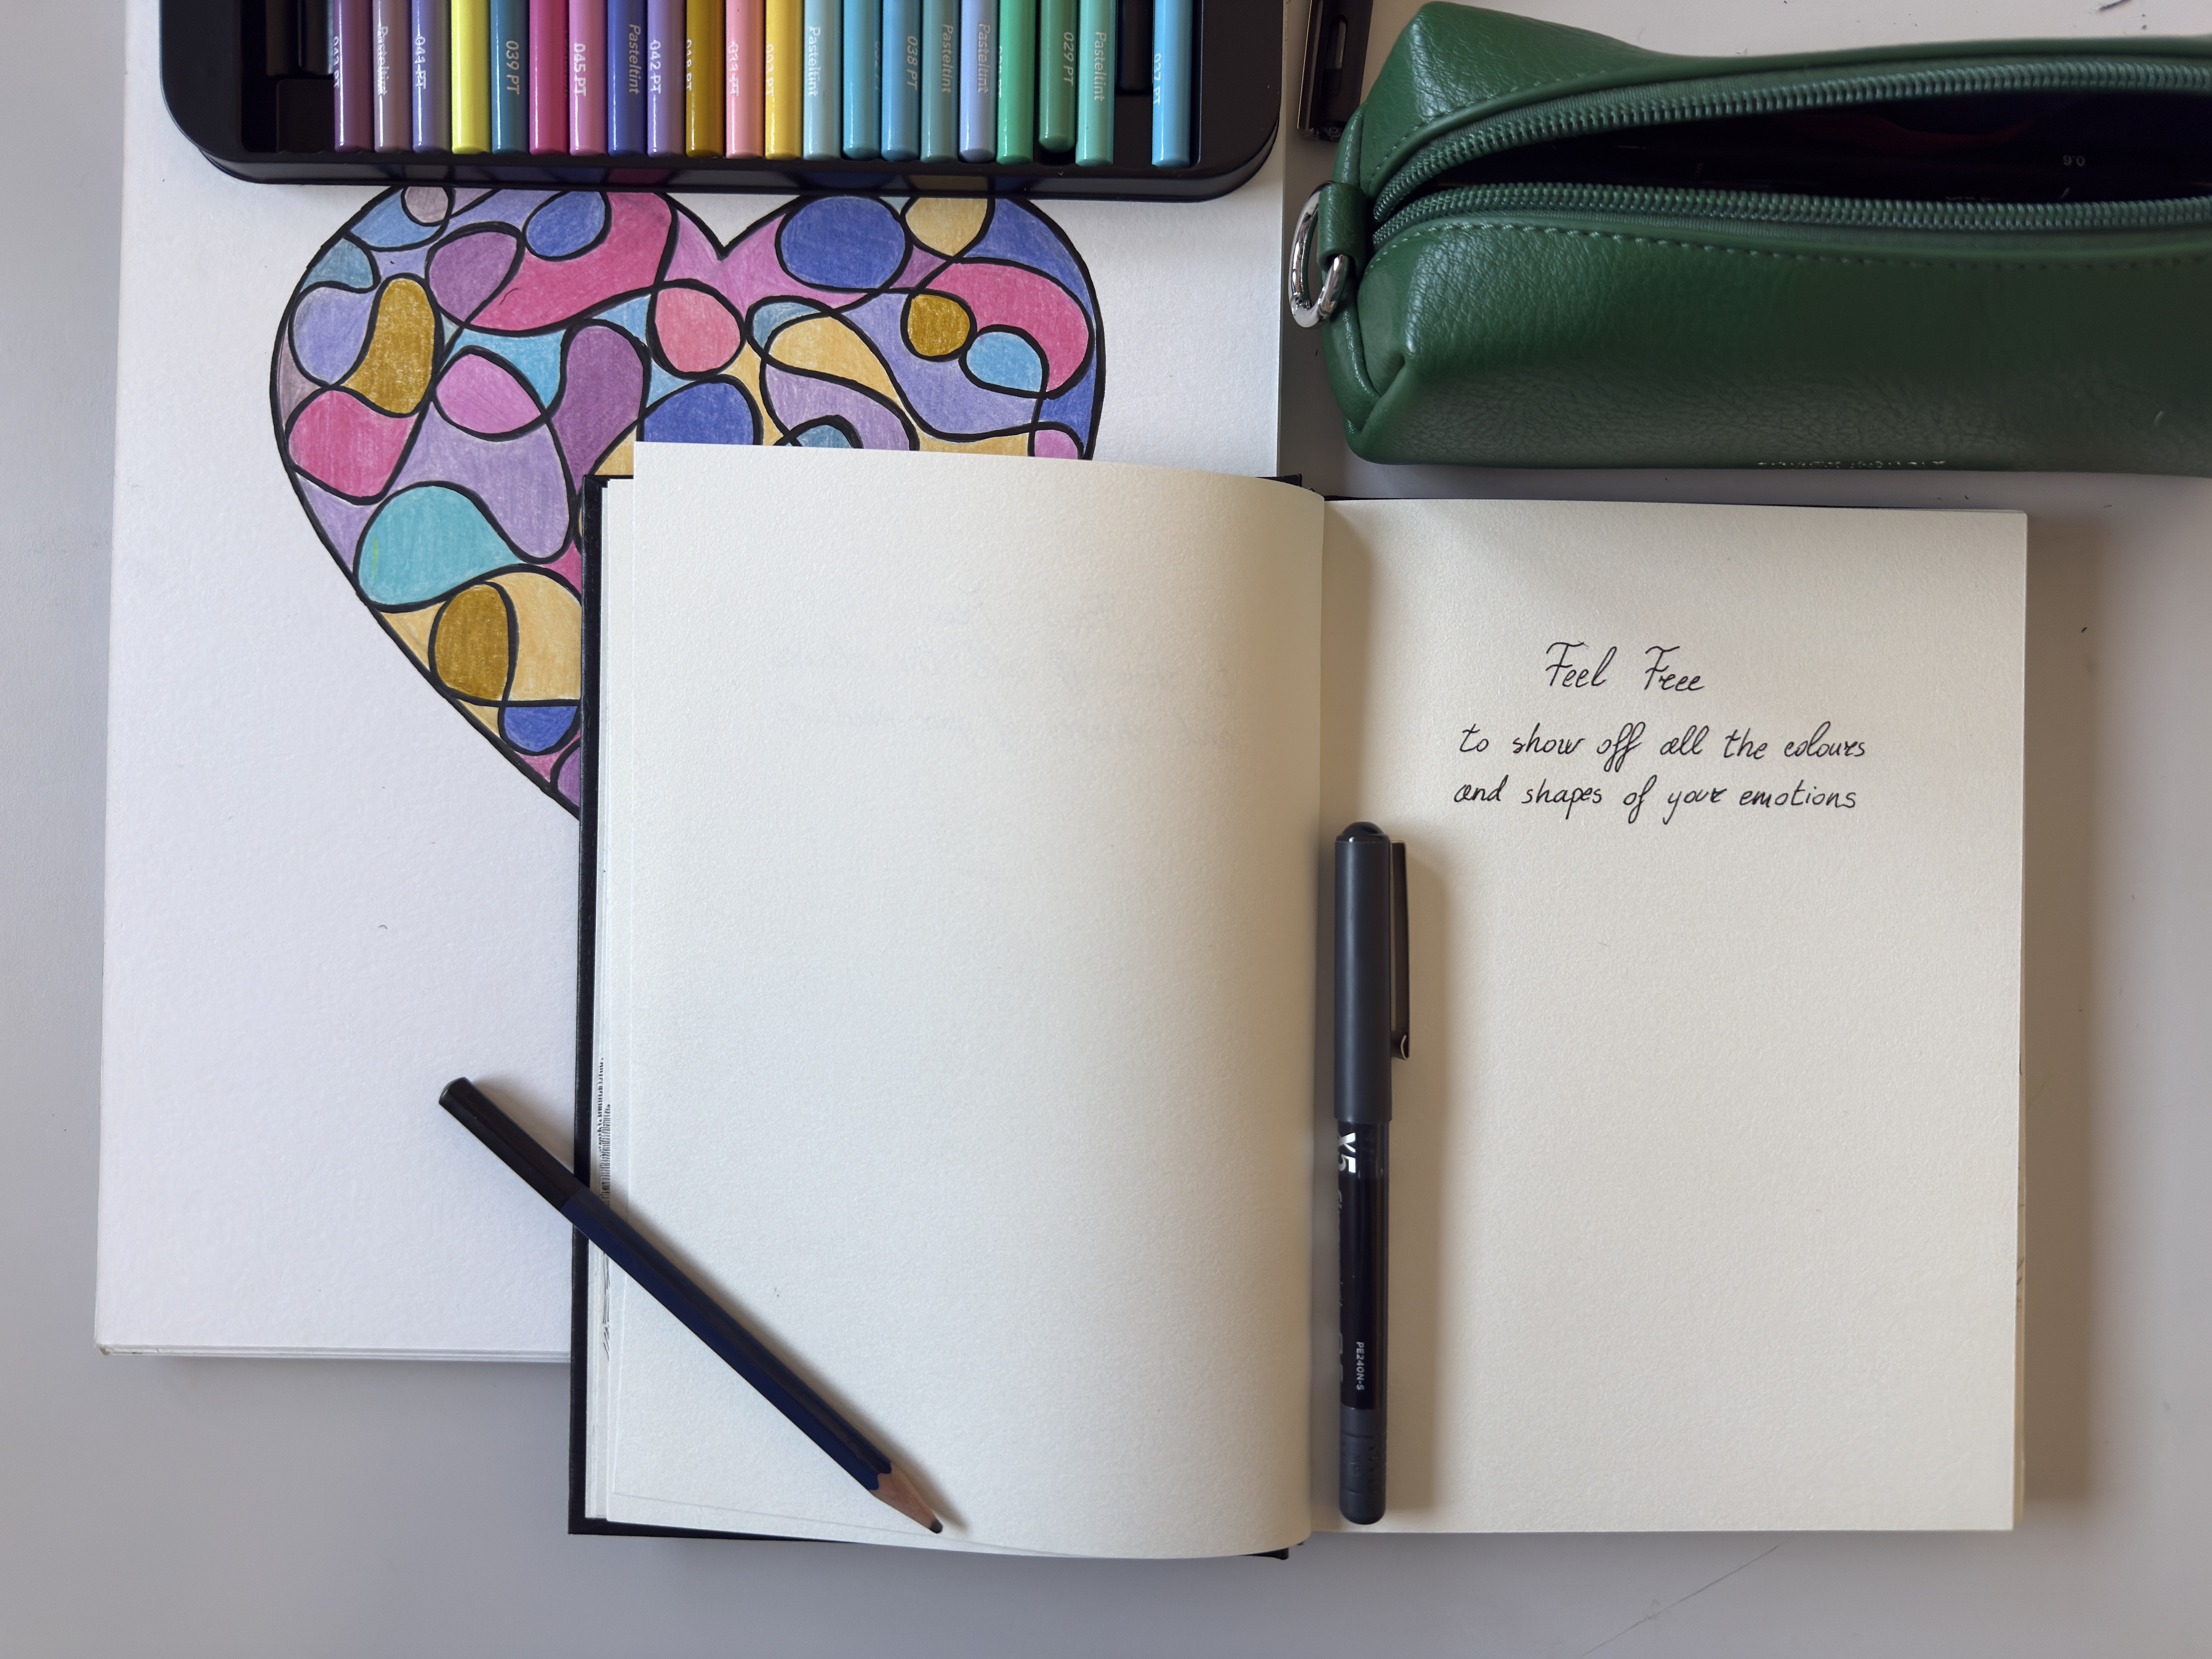 043 PT
Pasteltint
041 PT
039 PT
045 PT
Pasteltint
042 PT
033 PT
Pasteltint
038 PT
Pasteltint
Pasteltint
029 PT
Pasteltint
037 PT
0.6
Feel Free
to show off all the colours
and shapes of your emotions
V5
PE240N-S